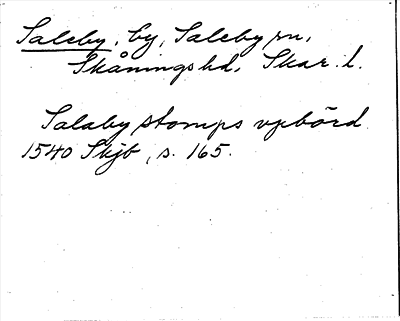 Saleby, by, Saleby sn,
Skånings hd, Skar. l.
Salaby stomps vpbörd
1540 Skjb, s. 165.